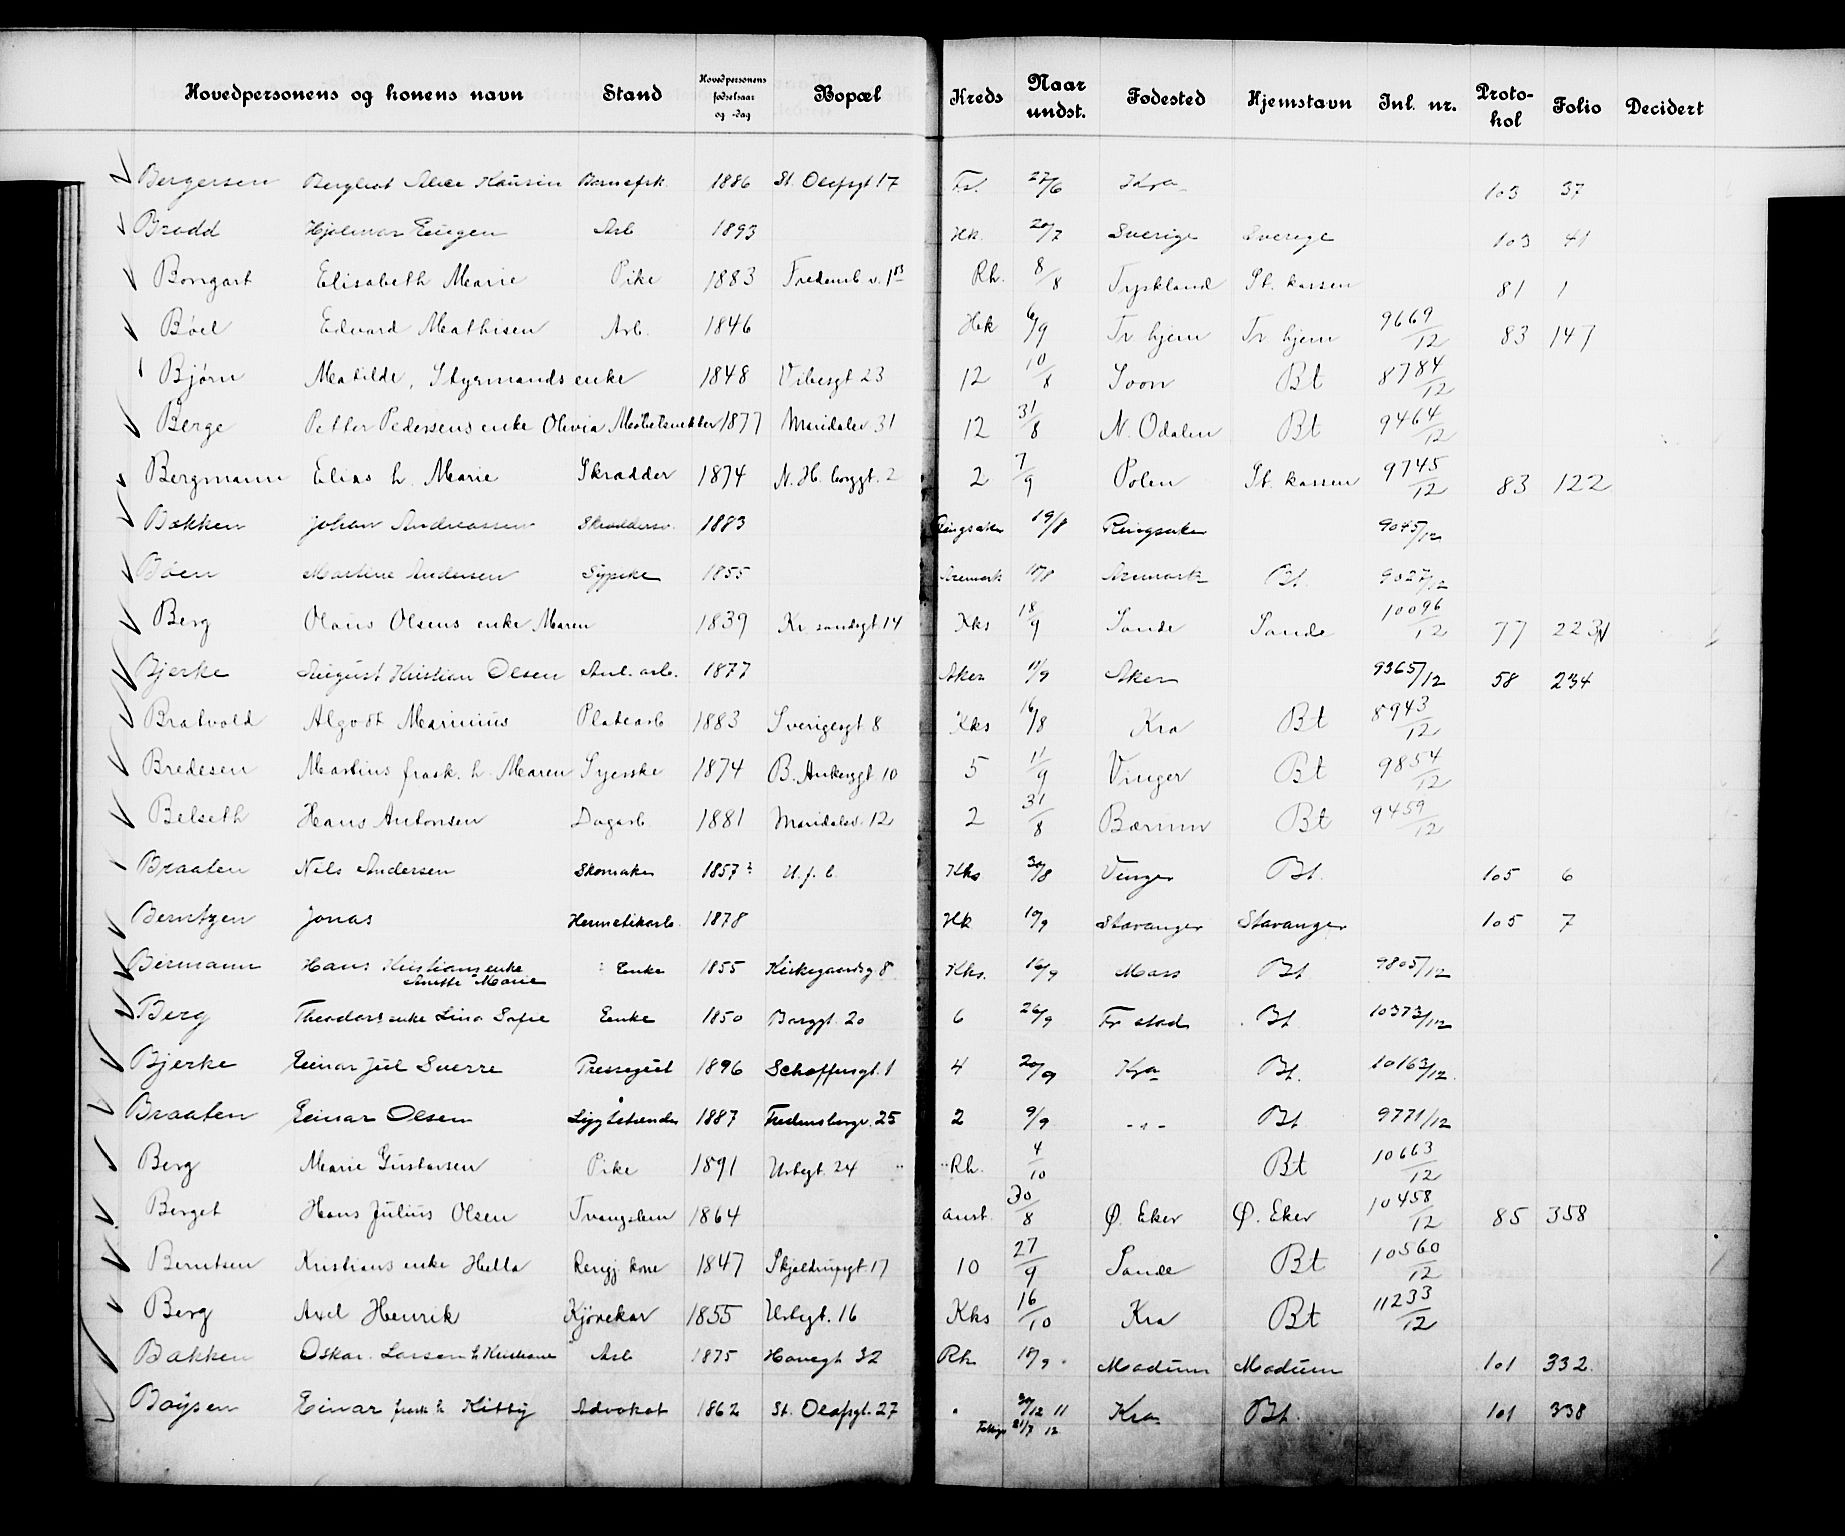 Hovedpersonens og konens navn Stand Hovedpersonens fødselsaar og -dag Bopæl Kreds Naar undst. Fødested Hjemstavn Inl. nr. Protokol Folio Decidert
Bergersen Bergliot Alice 1886 St. Olafsgt 17 Fr. 27/6 Kra 103 37
Brodd Hjalmar Eugen Arb 1893 Hk. 20/7 Sverige Sverige 103 41
Bongart Elisabeth Marie Pike 1883 Fredensb v. 1 Rh. 8/8 Tyskland St. kassen 81 1
Bøel Edvard Mathisen Arb. 1846 Hk 6/9 Tr hjem Tr hjem 9669/12 83 147
Bjørn Matilde, Styrmands enke 1848 Vibesgt 23 12 10/8 Soon Bt 8784/12
Berge Petter Pedersens enke Olivia 1877 Maridalsv 31 12 31/8 N. Odalen Bt 9464/12
Bergmann Elias h. Marie Skrædder 1874 N. H. borggt. 2 2 7/9 Polen St. kassen 9745/12 83 122
Bakken Johan Andreassen Skræddersv. 1883 Ringsaker 19/8 Ringsaker 9045/12
Bøen Martine Andersen Sypike 1855 Aremark 18/8 Aremark Bt. 9027/12
Berg Olaus Olsens enke Maren 1839 Kr sandsgt 14 Kks 18/9 Sande Sande 10096/12 77 223
Bjerke August Kristian Olsen Anl. arb. 1877 Aker 11/9 Aker 9365/12 58 234
Bratvold Algodt Marinius Platearb 1883 Sverigesgt 8 Kks 16/8 Kra Bt 8943/12
Bredesen Martins frask. h. Maren Syerske 1874 B. Ankersgt 10 5 11/9 Vinger Bt 9854/12
Belseth Hans Antonsen Dagarb. 1881 Maridalsv. 12 2 31/8 Bærum Bt 9459/12
Braaten Nils Andersen Skomaker 1857? U. f. b. Kks 30/8 Vinger Bt. 105 6
Berntzen Jonas Hermetikarb. 1878 Hk 10/9 Stavanger Stavanger 105 7
Biermann Hans Kristians enke Anette Marie Enke 1855 Kirkegaardsg 8 Kks. 16/9 Moss Bt 9805/12
Berg Theodors enke Lina Sofie Enke 1850 Borggt. 20 6 26/9 Fr stad Bt 10373/12
Bjerke Einar Jul Sverre Pressegut 1896 Schoffersgt. 1 4 20/9 Kra Bt. 10163/12
Braaten Einar Olsen Lygtetænder 1887 Fredensborgv. 25 2 9/9 - - - Bt 9771/12
Berg Marie Gustavsen Pike 1891 Urtegt. 24 Rh. 4/10 Bt 10663/12
Berget Hans Julius Olsen Tvangslem 1864 anst. 30/8 Ø. Eker Ø. Eker 10458/12 85 358
Berntsen Kristians enke Hella Rengj kone 1847 Skjeldrupsgt. 17 10 27/9 Sande Bt 10560/12
Berg Axel Henrik Kjørekar 1855 Urtegt. 16 Kks 16/10 Kra Bt 11233/12
Bakken Oskar Larsen h Kristiane Arb 1875 Havegt 32 Rh 18/9 Modum Modum 101 332
Boysen Einar frask h Kitty Advokat 1862 St. Olafsgt. 27 /12 11 Kra Bt. 101 338
21/7 12